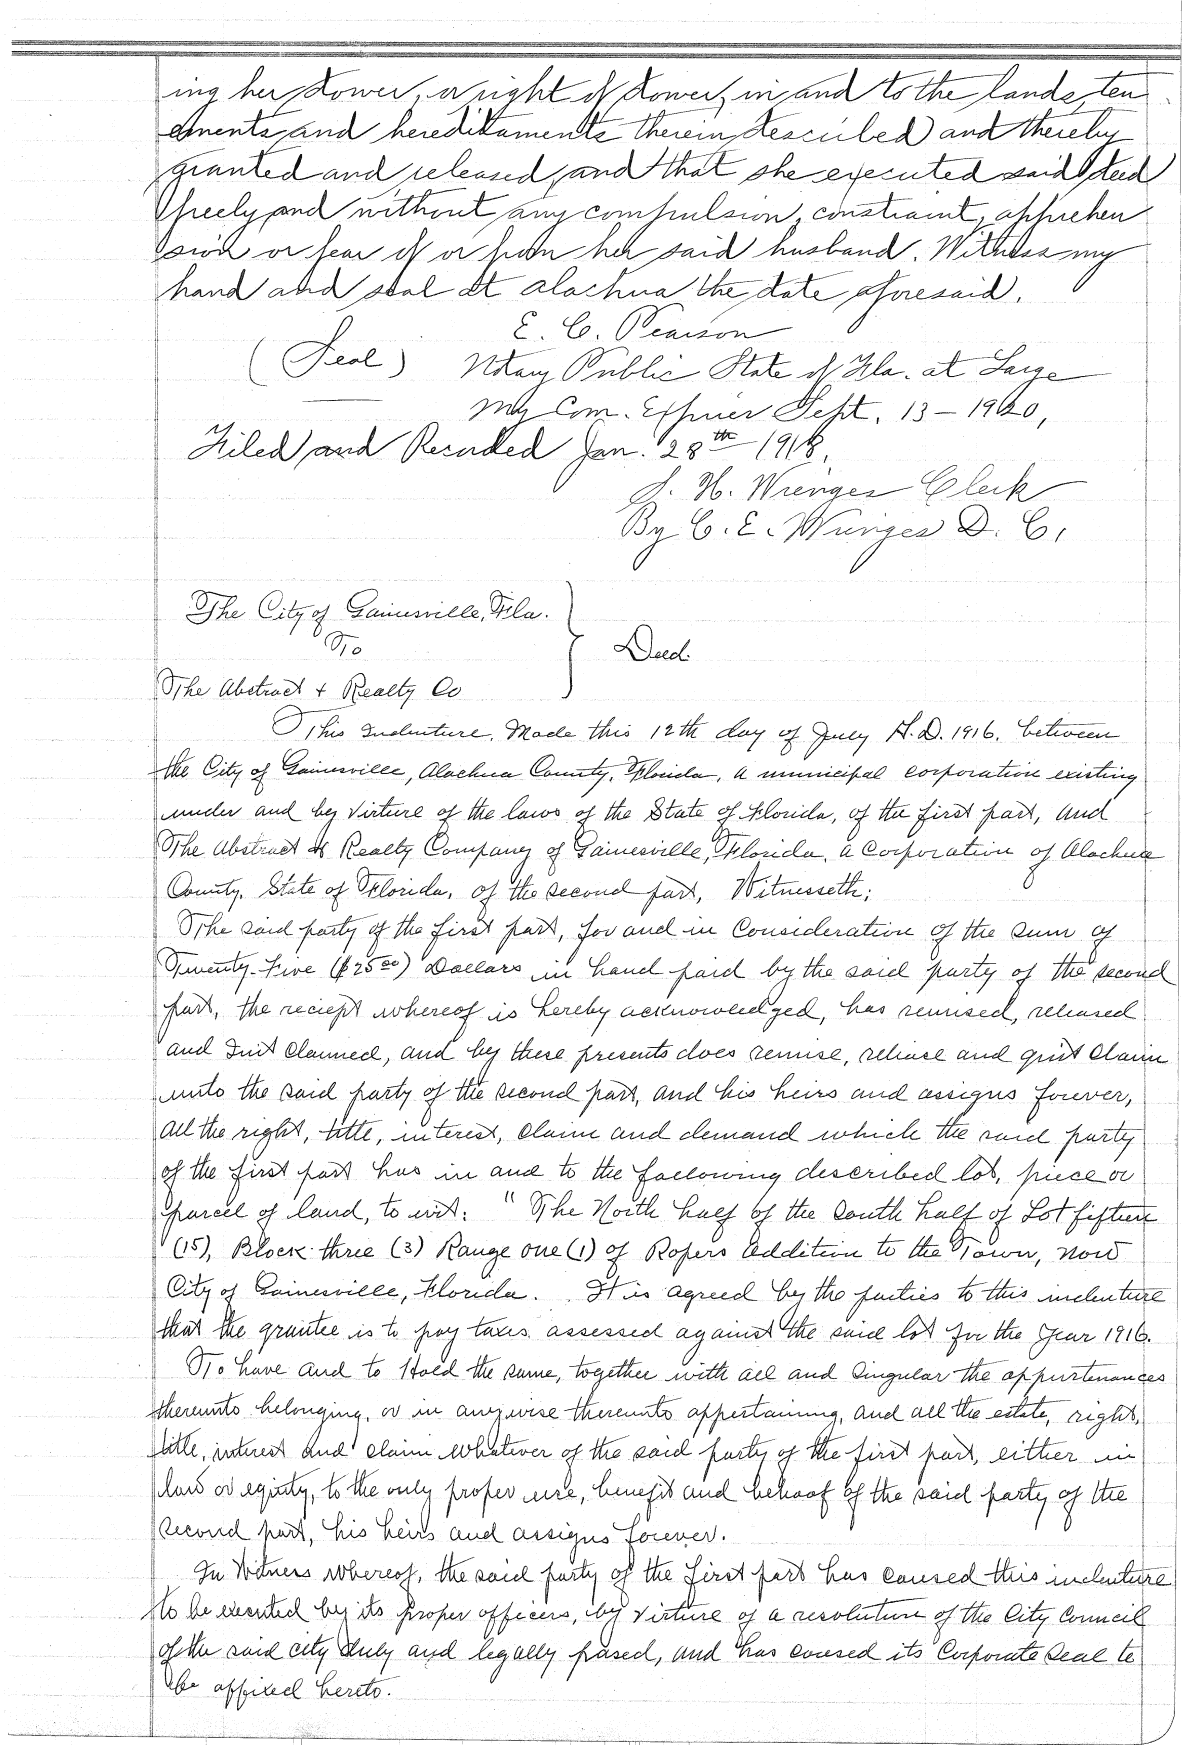 ing her dower, or right of dower, in and to the lands, ten
ements and hereditaments therein described and thereby
granted and released, and that she executed said deed
freely and without any compulsion, constraint, apprehen
sion or fear of or from her said husband. Witness my
hand and seal at Alachua the date aforesaid.
E. C. Pearson
(Seal) Notary Public State of Fla. at Large
My Com. Expires Sept. 13 - 1920,
Filed and Recorded Jan. 28th 1918.
S. H. Wienges Clerk
By C. E. Wienges D. C.
The City of Gainesville, Fla.
To
Deed.
The Abstract & Realty Co
This Indenture, Made this 12th day of July A.D. 1916, between
the City of Gainesville, Alachua County, Florida, a municipal corporation existing
under and by virture of the laws of the State of Florida, of the first part, and
The Abstract & Realty Company of Gainesville, Florida, a Corporation of Alachua
County, State of Florida, of the second part, Witnesseth;
The said party of the first part, for and in Consideration of the sum of
Twenty-Five ($25.00) Dollars in hand paid by the said party of the second
part, the reciept whereof is hereby acknowledged, has remised, released
and Quit Claimed, and by these presents does remise, release and quit claim
unto the said party of the second part, and his heirs and assigns forever,
all the right, title, interest, claim and demand which the said party
of the first part has in and to the following described lot, piece or
parcel of land, to wit: "The North half of the South half of Lot fifteen
(15), Block three (3) Range one (1) of Ropers Addition to the Town, now
City of Gainesville, Florida. It is agreed by the parties to this indenture
that the grantee is to pay taxes assessed against the said lot for the Year 1916.
To have and to Hold the same, together with all and singular the appurtenances
thereunto belonging, or in anywise thereunto appertaining, and all the estate, right,
title, interest and claim whatever of the said party of the first part, either in
law or equity, to the only proper use, benefit and behoof of the said party of the
second part, his heirs and assigns forever.
In Witness whereof, the said party of the first part has caused this indenture
to be executed by its proper officers, by virture of a resolution of the City Council
of the said city duly and legally passed, and has caused its Corporate Seal to
be affixed hereto.